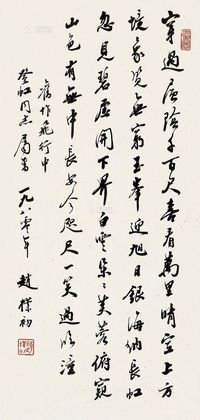 穿過層陰千百尺喜看萬里晴空上方
境象覺無窮玉峯迎旭日銀海納長虹
忽見碧虛開下界白雲朵朵芙蓉俯窺
山色有無中長安今咫尺一笑過臨潼
舊作飛行中
虹同志屬書 一九八〇年 趙樸初